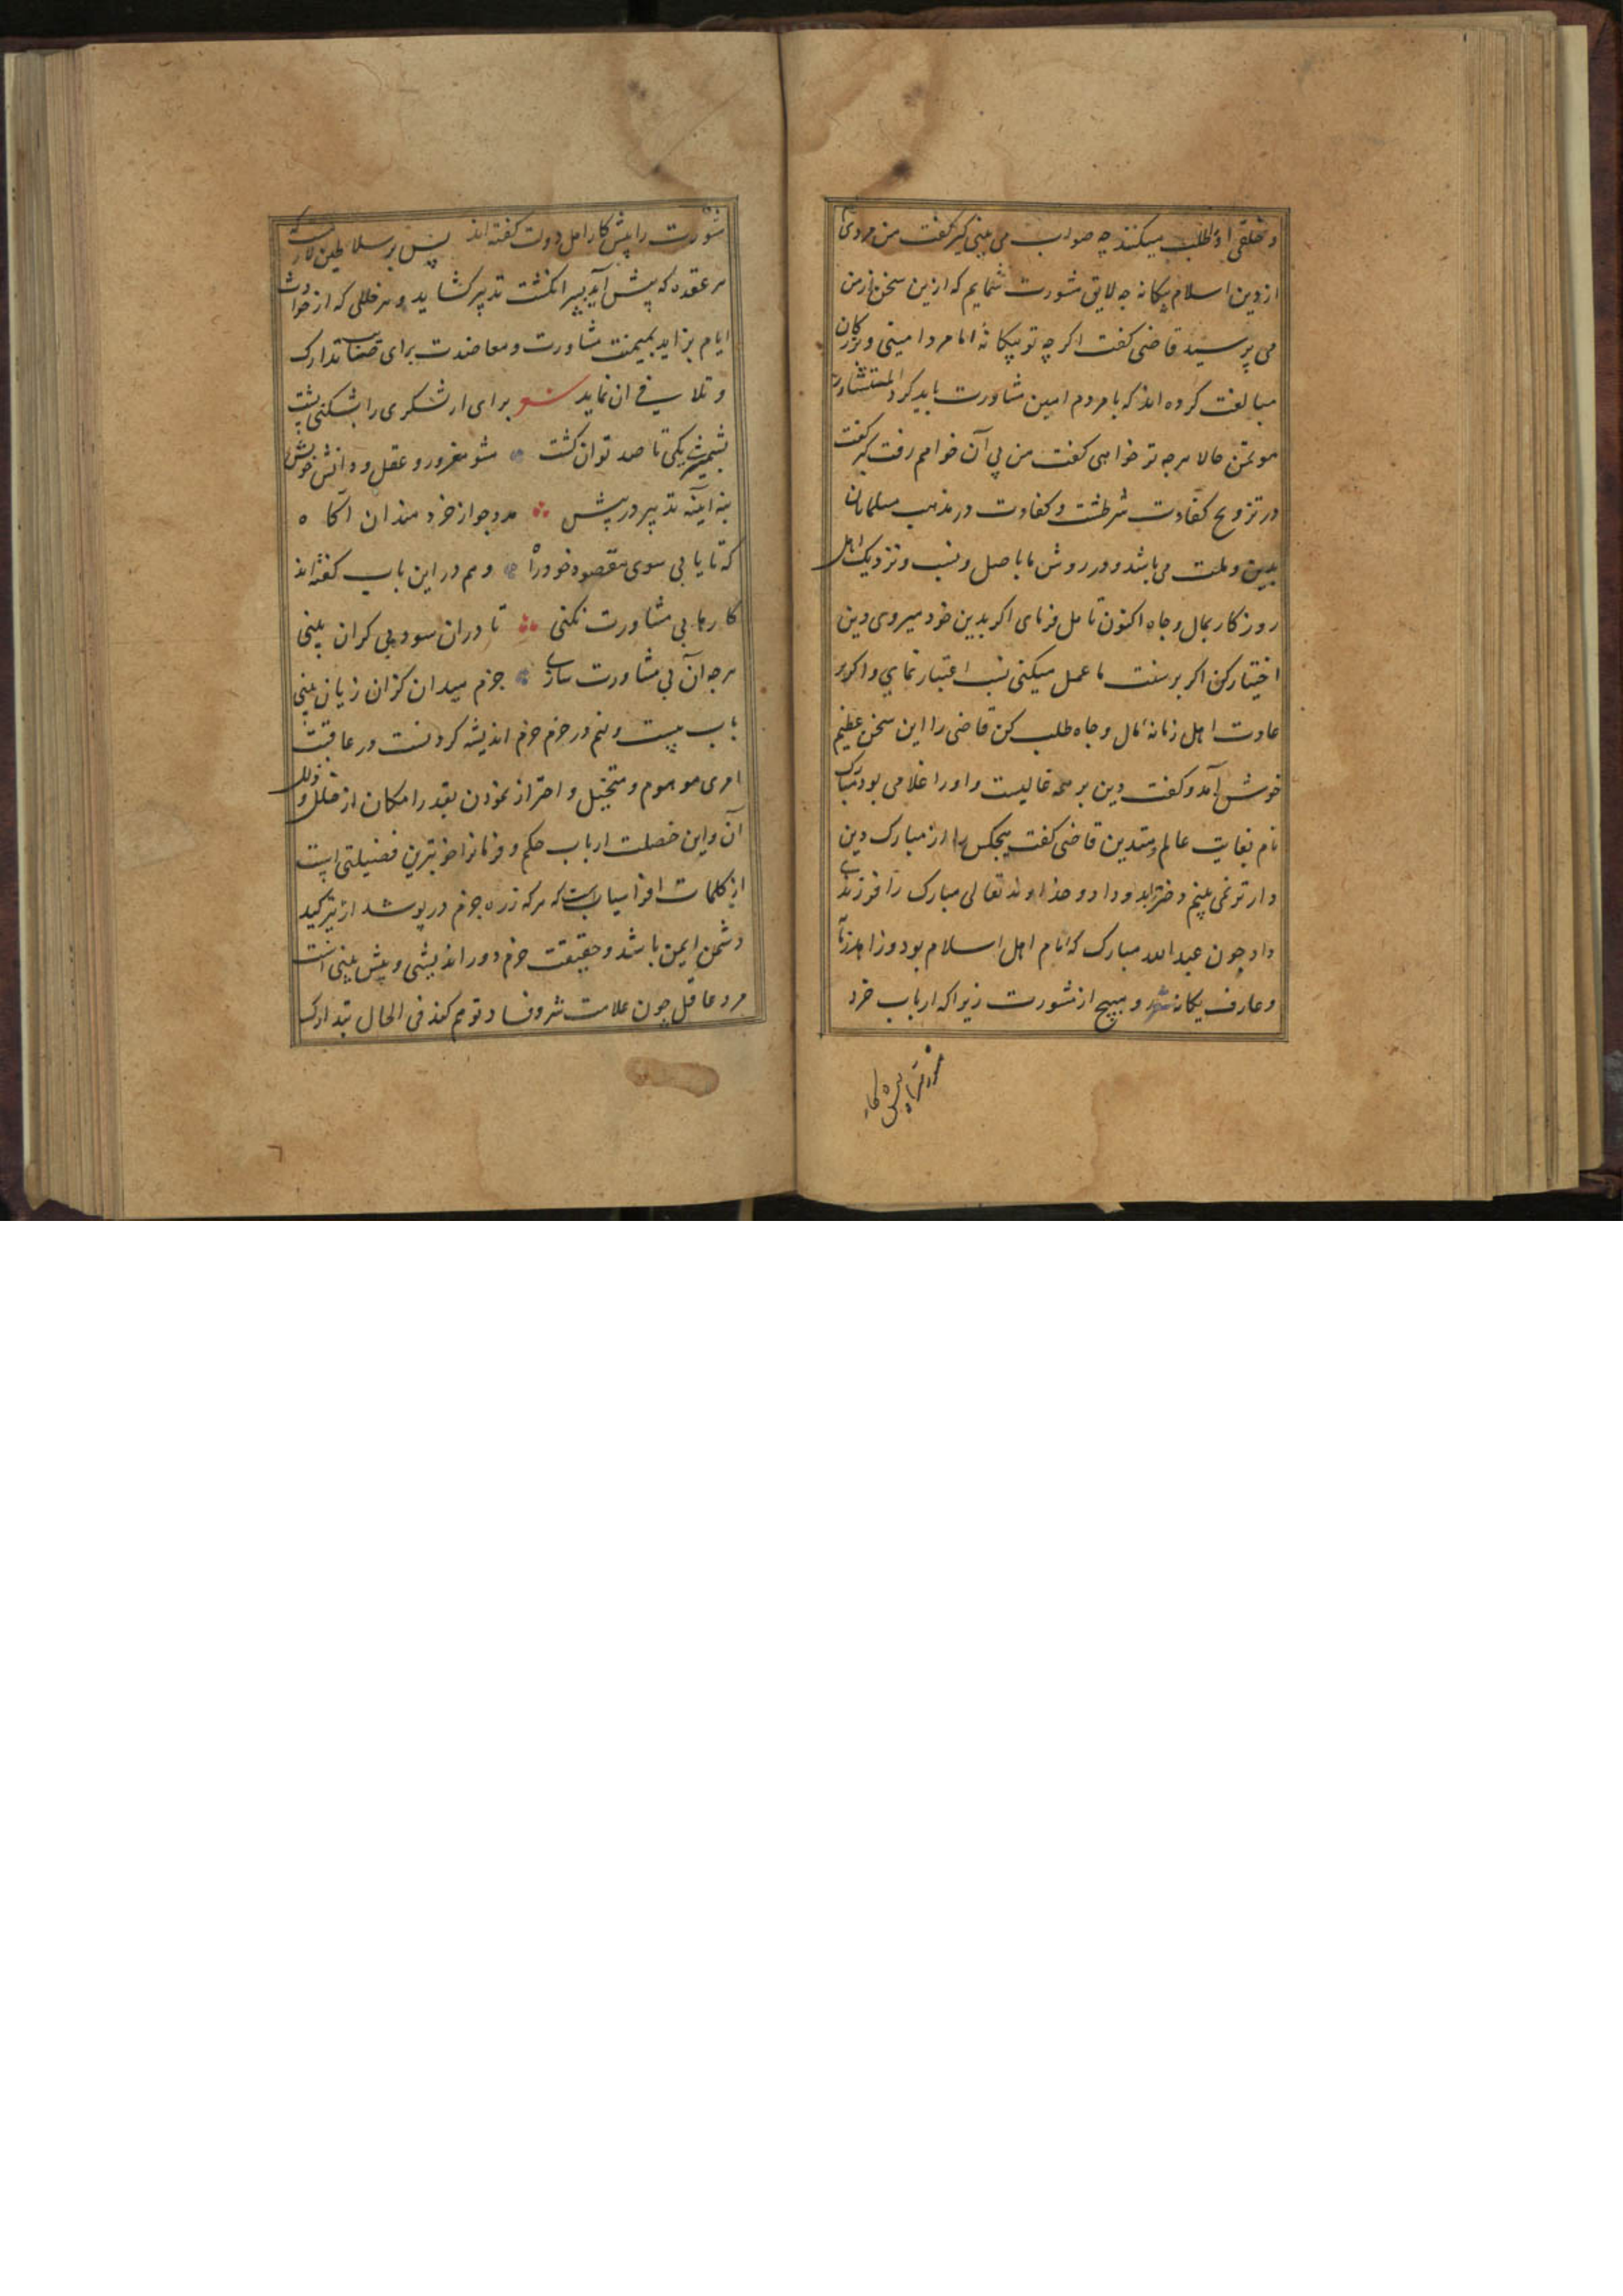 و خلقی او را طلب میکنند چه صواب می بینی کبر گفت من مردی ام
از دین اسلام بیکانه چه لایق مشورت شمایم که ازین سخن از من
می پرسید قاضی کفت اکرچه تو بیکانهٔ اما مرد امینی و بزرکان
مبالغت کرده اند که با مردم امین مشاورت باید کرد المستشار
موتمن حالا هرچه تو خواهی کفت من پی آن خواهم رفت کبر کفت
در تزویج کفاوت شرطست و کفاوت در مذهب مسلمانان
بدین و ملت می باشد و در روش ما باصل و نسب و نزدیک اهل
روزکار بمال و جاه اکنون تامل فرمای اکر بدین خود میروی دین
اختیار کن اکر بر سنت ما عمل میکنی نسب اعتبار نمای و اکر بر
عادت اهل زمانه مال و جاه طلب کن قاضی را این سخن عظیم
خوش آمد و کفت دین بر همه غالبست و او را غلامی بود مبارک
نام بغایت عالم و متدین قاضی کفت هیچکس را از مبارک دین
دارتر نمی بینم دختر بدو داد و خداوند تعالی مبارک را فرزندی
داد چون عبدالله مبارک که امام اهل اسلام بود و زاهد زمان
و عارف یکانه و مپیچ از مشورت زیرا که ارباب خرد
مشورت را پیش کار اهل دولت کفته اند پس بر سلاطین لازمست
هر عقده که پیش آید بسر انکشت تدبیر کشاید و هر خللی که از حوادث
ایام بزاید بمیمنت مشاورت و معاضدت برای صایب تدارک
و تلافی ان نماید شعر برای ار لشکری را بشکنی پشت
بشمشیر یکی تا صد توان کشت مشو مغرور و عقل و دانش خویش
بنه آینه تدبیر در پیش مدد جو از خردمندان آکاه
که تا یابی سوی مقصود خود راه و هم در این باب کفته اند
کارها بی مشاورت نکنی تا دران سود بی کران بینی
هرچه آن بی مشاورت سازی جزم میدان کزان زیان بینی
باب بیست و نهم در حزم حزم اندیشه کردنست در عاقبت
امری موهوم و متخیل و احتراز نمودن بقدر امکان از خلل و زلل
آن و این خصلت ارباب حکم و فرمانرا خوبترین فضیلتی است
از کلمات افراسیاب است که هرکه زره حزم در پوشد از تیر کید
دشمن ایمن باشد و حقیقت حزم دوراندیشی و پیش بینی است
مرد عاقل چون علامت شر و فساد توهم کند فی الحال بتدارک